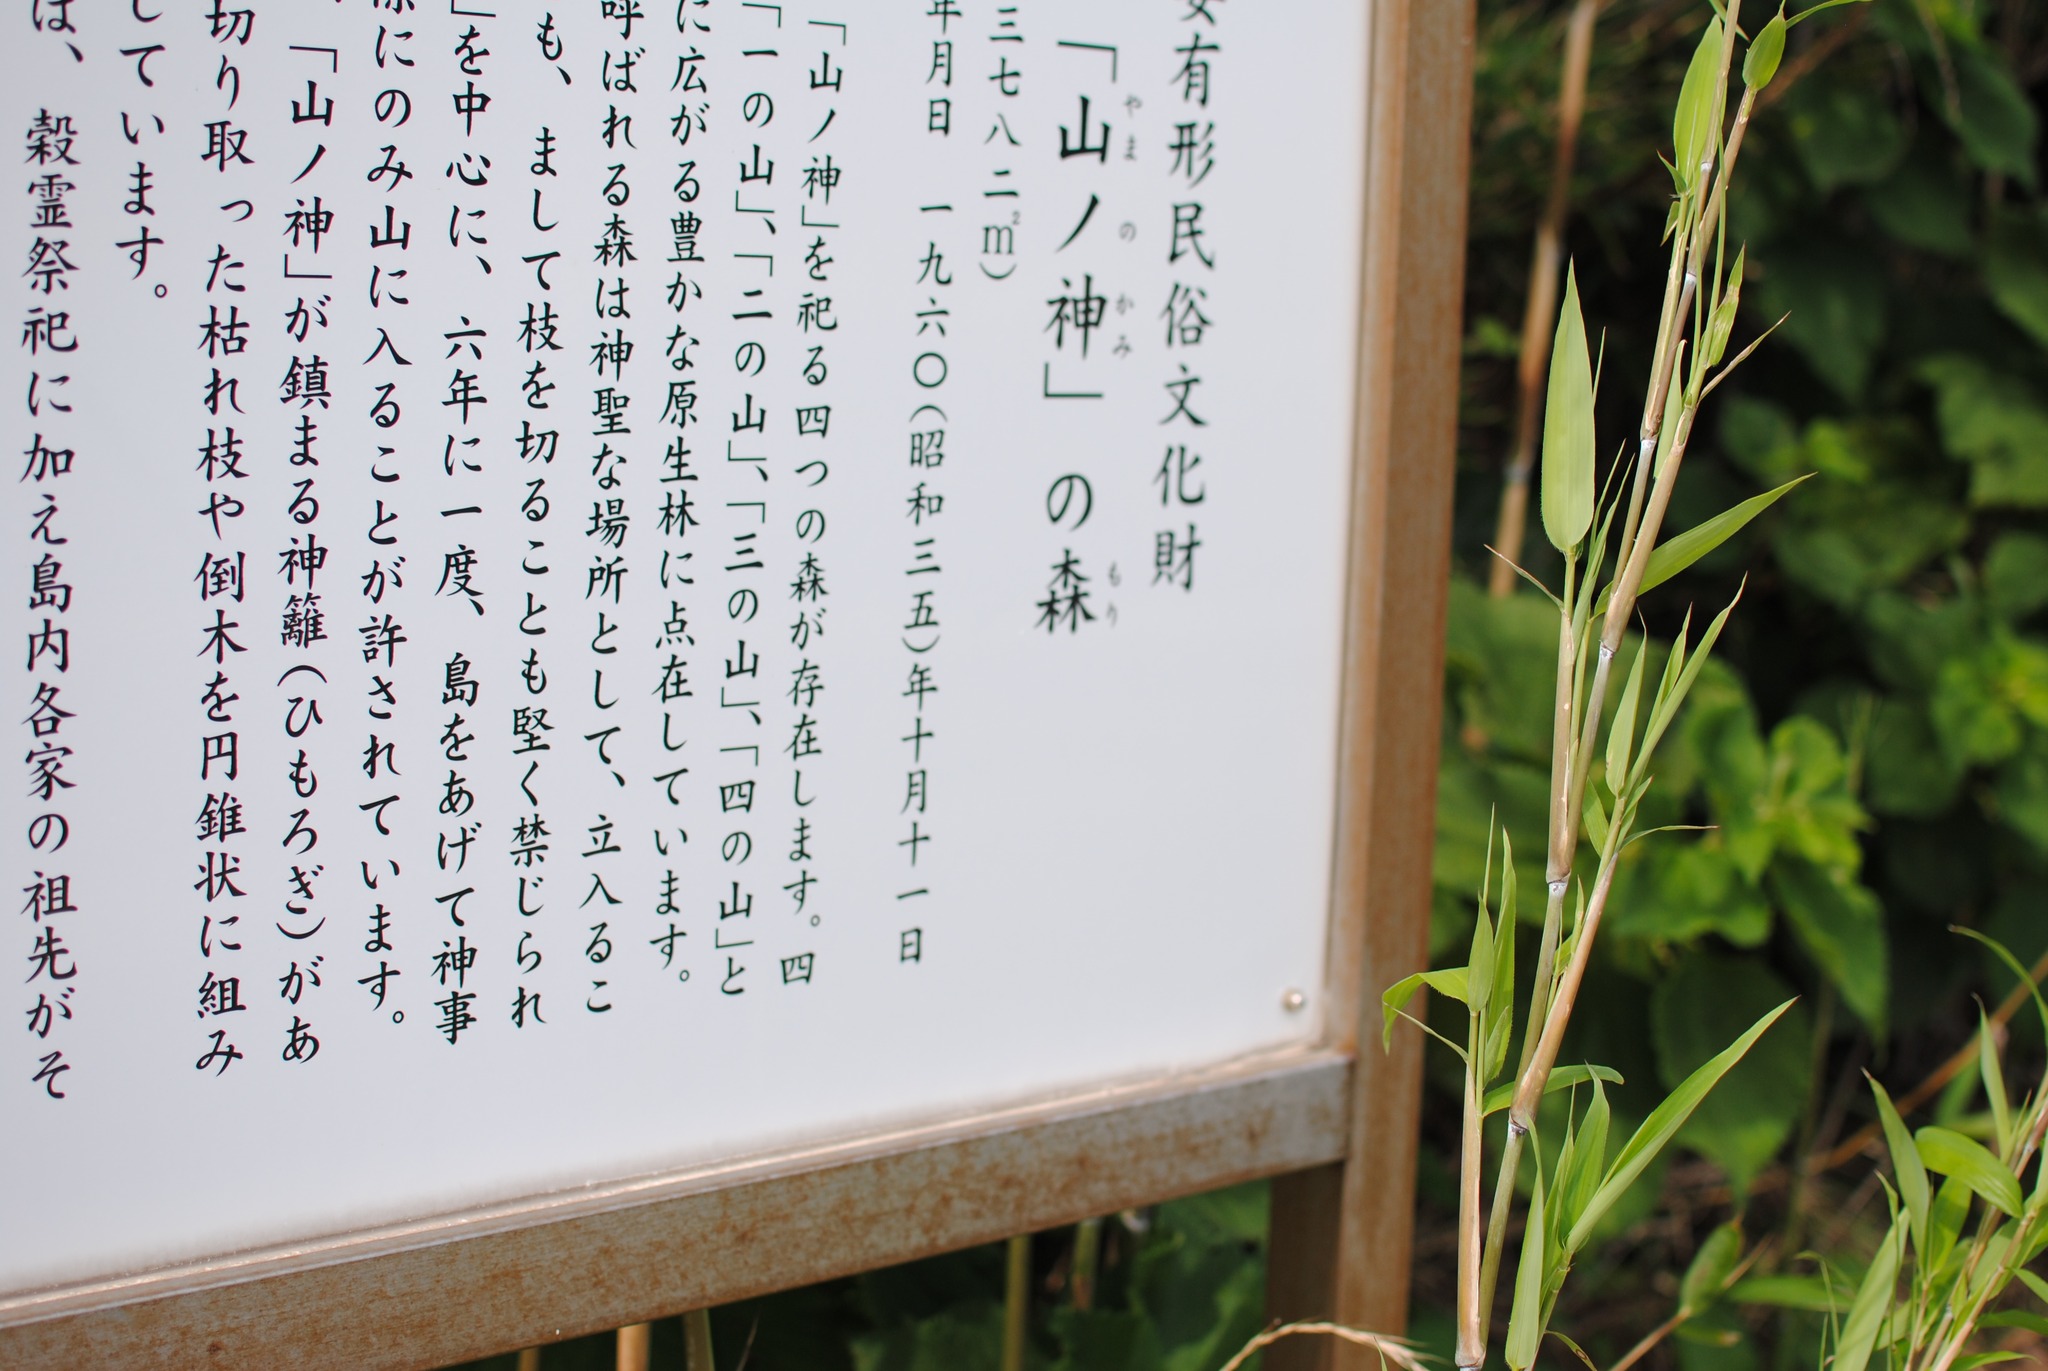 有形民俗文化財
「山ノ神」の森
やま の かみ もり
三七八二㎡）
年月日 一九六〇（昭和三五）年十月十一日
「山ノ神」を祀る四つの森が存在します。四
「一の山」、「二の山」、「三の山」、「四の山」と
に広がる豊かな原生林に点在しています。
呼ばれる森は神聖な場所として、立入るこ
も、まして枝を切ることも堅く禁じられ
」を中心に、六年に一度、島をあげて神事
際にのみ山に入ることが許されています。
「山ノ神」が鎮まる神籬（ひもろぎ）があ
切り取った枯れ枝や倒木を円錐状に組み
しています。
は、穀霊祭祀に加え島内各家の祖先がそ